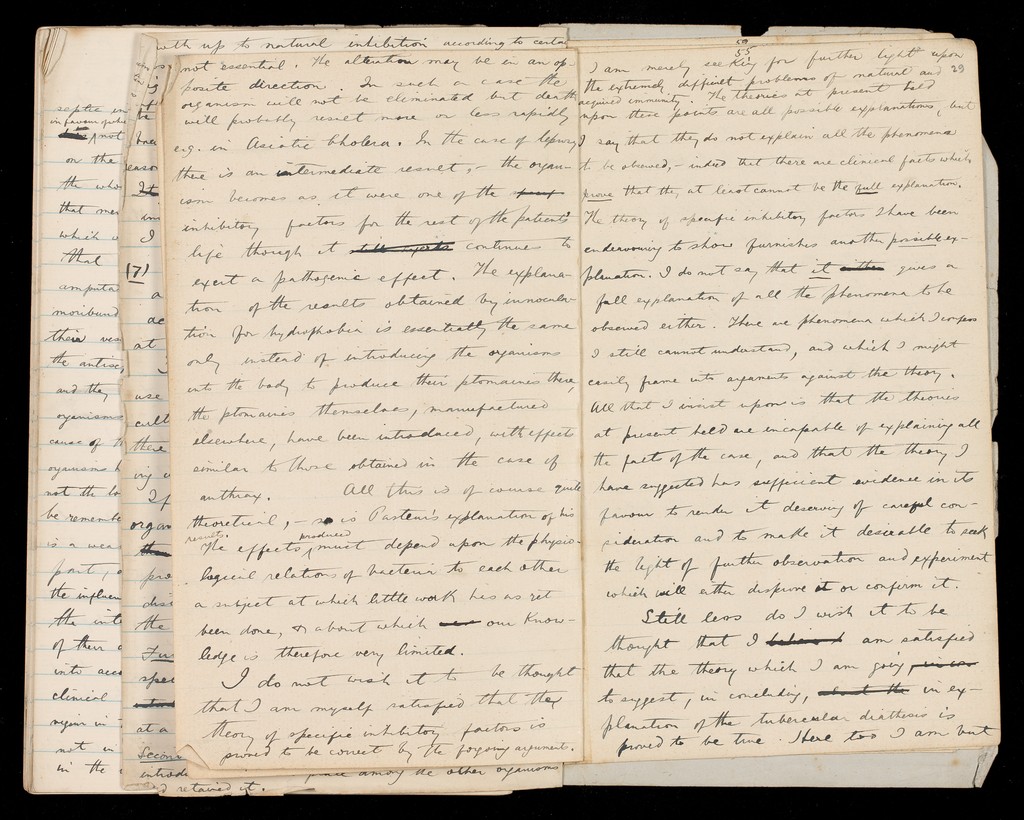 with up to natural inhibition according to certai
not essential. The alteration may be in an op-
posite direction. In such a case the
organism will not be eliminated but death
will probably result more or less rapidly
e.g. in Asiatic Cholera. In the case of leprosy
there is an intermediate result, – the organ-
ism becomes as it were one of the
inhibitory factors for the rest of the patient's
life though it continues to
exert a pathogenic effect. The explana-
tion of the results obtained by innocula-
tion for hydrophobia is essentially the same
only instead of introducing the organisms
into the body to produce their ptomaines there,
the ptomaines themselves, manufactured
elsewhere, have been introduced, with effects
similar to those obtained in the case of
anthrax. All this is of course quite
theoretical, – so is Pasteur's explanation of his
results.
The effects produced must depend upon the physio-
logical relations of bacteria to each other
a subject at which little work has as yet
been done, & about which our know-
ledge is therefore very limited.
I do not wish it to be thought
that I am myself satisfied that the
theory of specific inhibitory factors is
proved to be correct by the forgoing argument.
among the other organisms
and retained it.
55
29
I am merely seeking for further light upon
the extremely difficult problems of natural and
acquired immunity. The theories at present held
upon these points are all possible explanations, but
I say that they do not explain all the phenomena
to be observed, – indeed that there are clinical facts which
prove that they at least cannot be the full explanation.
The theory of specific inhibitory factors I have been
endeavouring to show furnishes another possible ex-
planation. I do not say that it gives a
full explanation of all the phenomena to be
observed either. There are phenomena which I confess
I still cannot understand, and which I might
easily frame into arguments against the theory.
All that I insist upon is that the theories
at present held are incapable of explaining all
the facts of the case, and that the theory I
have suggested has sufficient evidence in its
favour to render it deserving of careful con-
sideration and to make it desirable to seek
the light of further observation and experiment
which will either disprove it or confirm it.
Still less do I wish it to be
thought that I am satisfied
that the theory which I am going
to suggest, in concluding, in ex-
planation of the tubercular diathesis is
proved to be true. Here too I am but
septic
not
on the
the who
that mer
which
that
amputa
moribund
their
the antisep
and they
organisms
cause of
organisms
not the
be remembe
is a wea
part,
the influen
the
of their
into acco
clinical
not in
in the
be
(7)
I
at
use
cult
there
organ
the
spec
at a
Second
introd